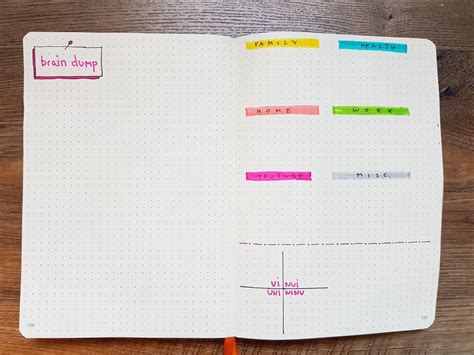 brain dump
FAMILY HEALTH
HOME WORK
YOUTUBE MISC.
UI NUI
UNI NINU